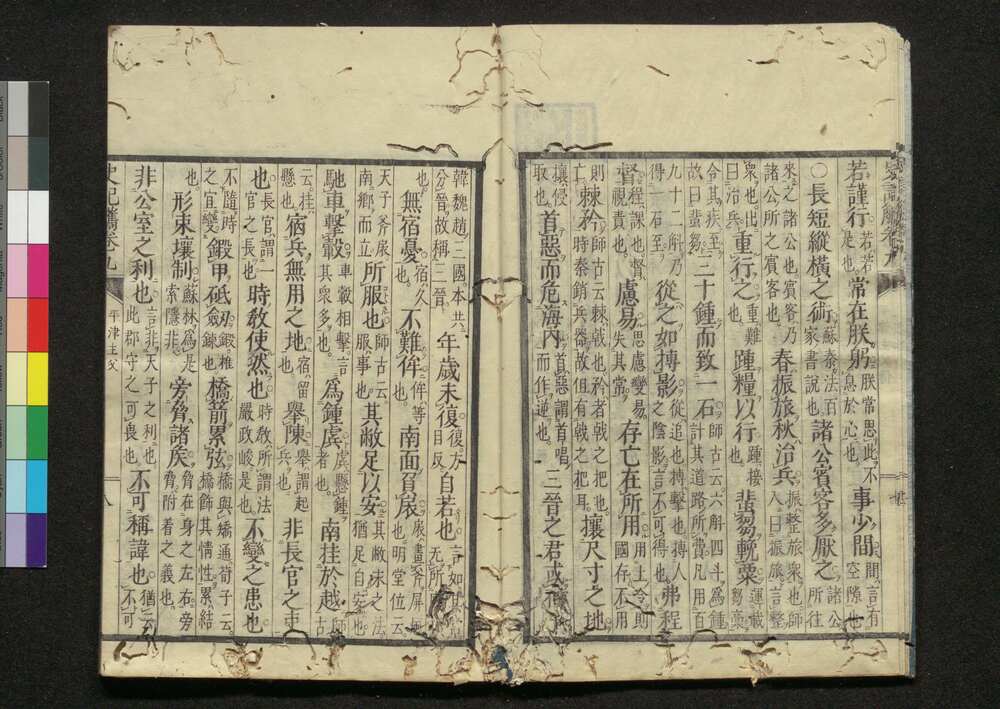 若謹行若若是也常在朕躬朕常思此不息於心也事少間間言有空隙也
○長短縱橫之術蘇秦法百家書說也諸公賓客多厭之諸公所往
來之諸公也賓客乃諸公所之賓客也春振旅秋治兵振整旅衆也師入曰振旅言整
衆也出曰治兵重行之重難也踵糧以行踵接也蜚芻輓粟運載芻藁
令其疾至故曰蜚芻三十鍾而致一石師古云六斛四斗爲鍾計其道路所費凡用百
九十二斛乃得一石至從之如搏影從追也搏擊也搏人之陰影言不可得也弗程
督程課也督視責也慮易思慮變易失其常存亡在所用所用上令則國存不用
則亡棘矜師古云棘戟也矜者戟之把也時秦銷兵器故但有戟之把耳攘尺寸之地
攘侵取也首惡而危海內首惡謂首唱而作逆也三晉之君或
韓魏趙三國本共分晉故稱三晉年歲未復復方目反自若也言如其無所
也無宿憂宿久也不難侔侔等也南面負扆扆畫斧屏也明堂位云
天子斧扆南鄉而立所服也師古云服事也其敝足以安其敝末之法猶足自安也
馳車擊轂車轂相擊言其衆多也爲鍾虡虡懸鍾者也南挂於越師古
云挂懸也宿兵無用之地宿留也舉陳舉謂起兵也非長官之吏
也長官謂一官之長也時敎使然也時敎所謂法嚴政峻是也不變之患也
不隨時之宜變鍛甲砥劔鍛椎鍊也橋箭累弦橋與矯通荀子云橋飾其情性累結
也形束壤制蘇林爲是索隱非旁脅諸矦脅在身之左右旁脅附着之義也
非公室之利也言非天子之利也此郡守之可畏也不可稱諱也猶云不可
史記觿卷九
平津主父
八